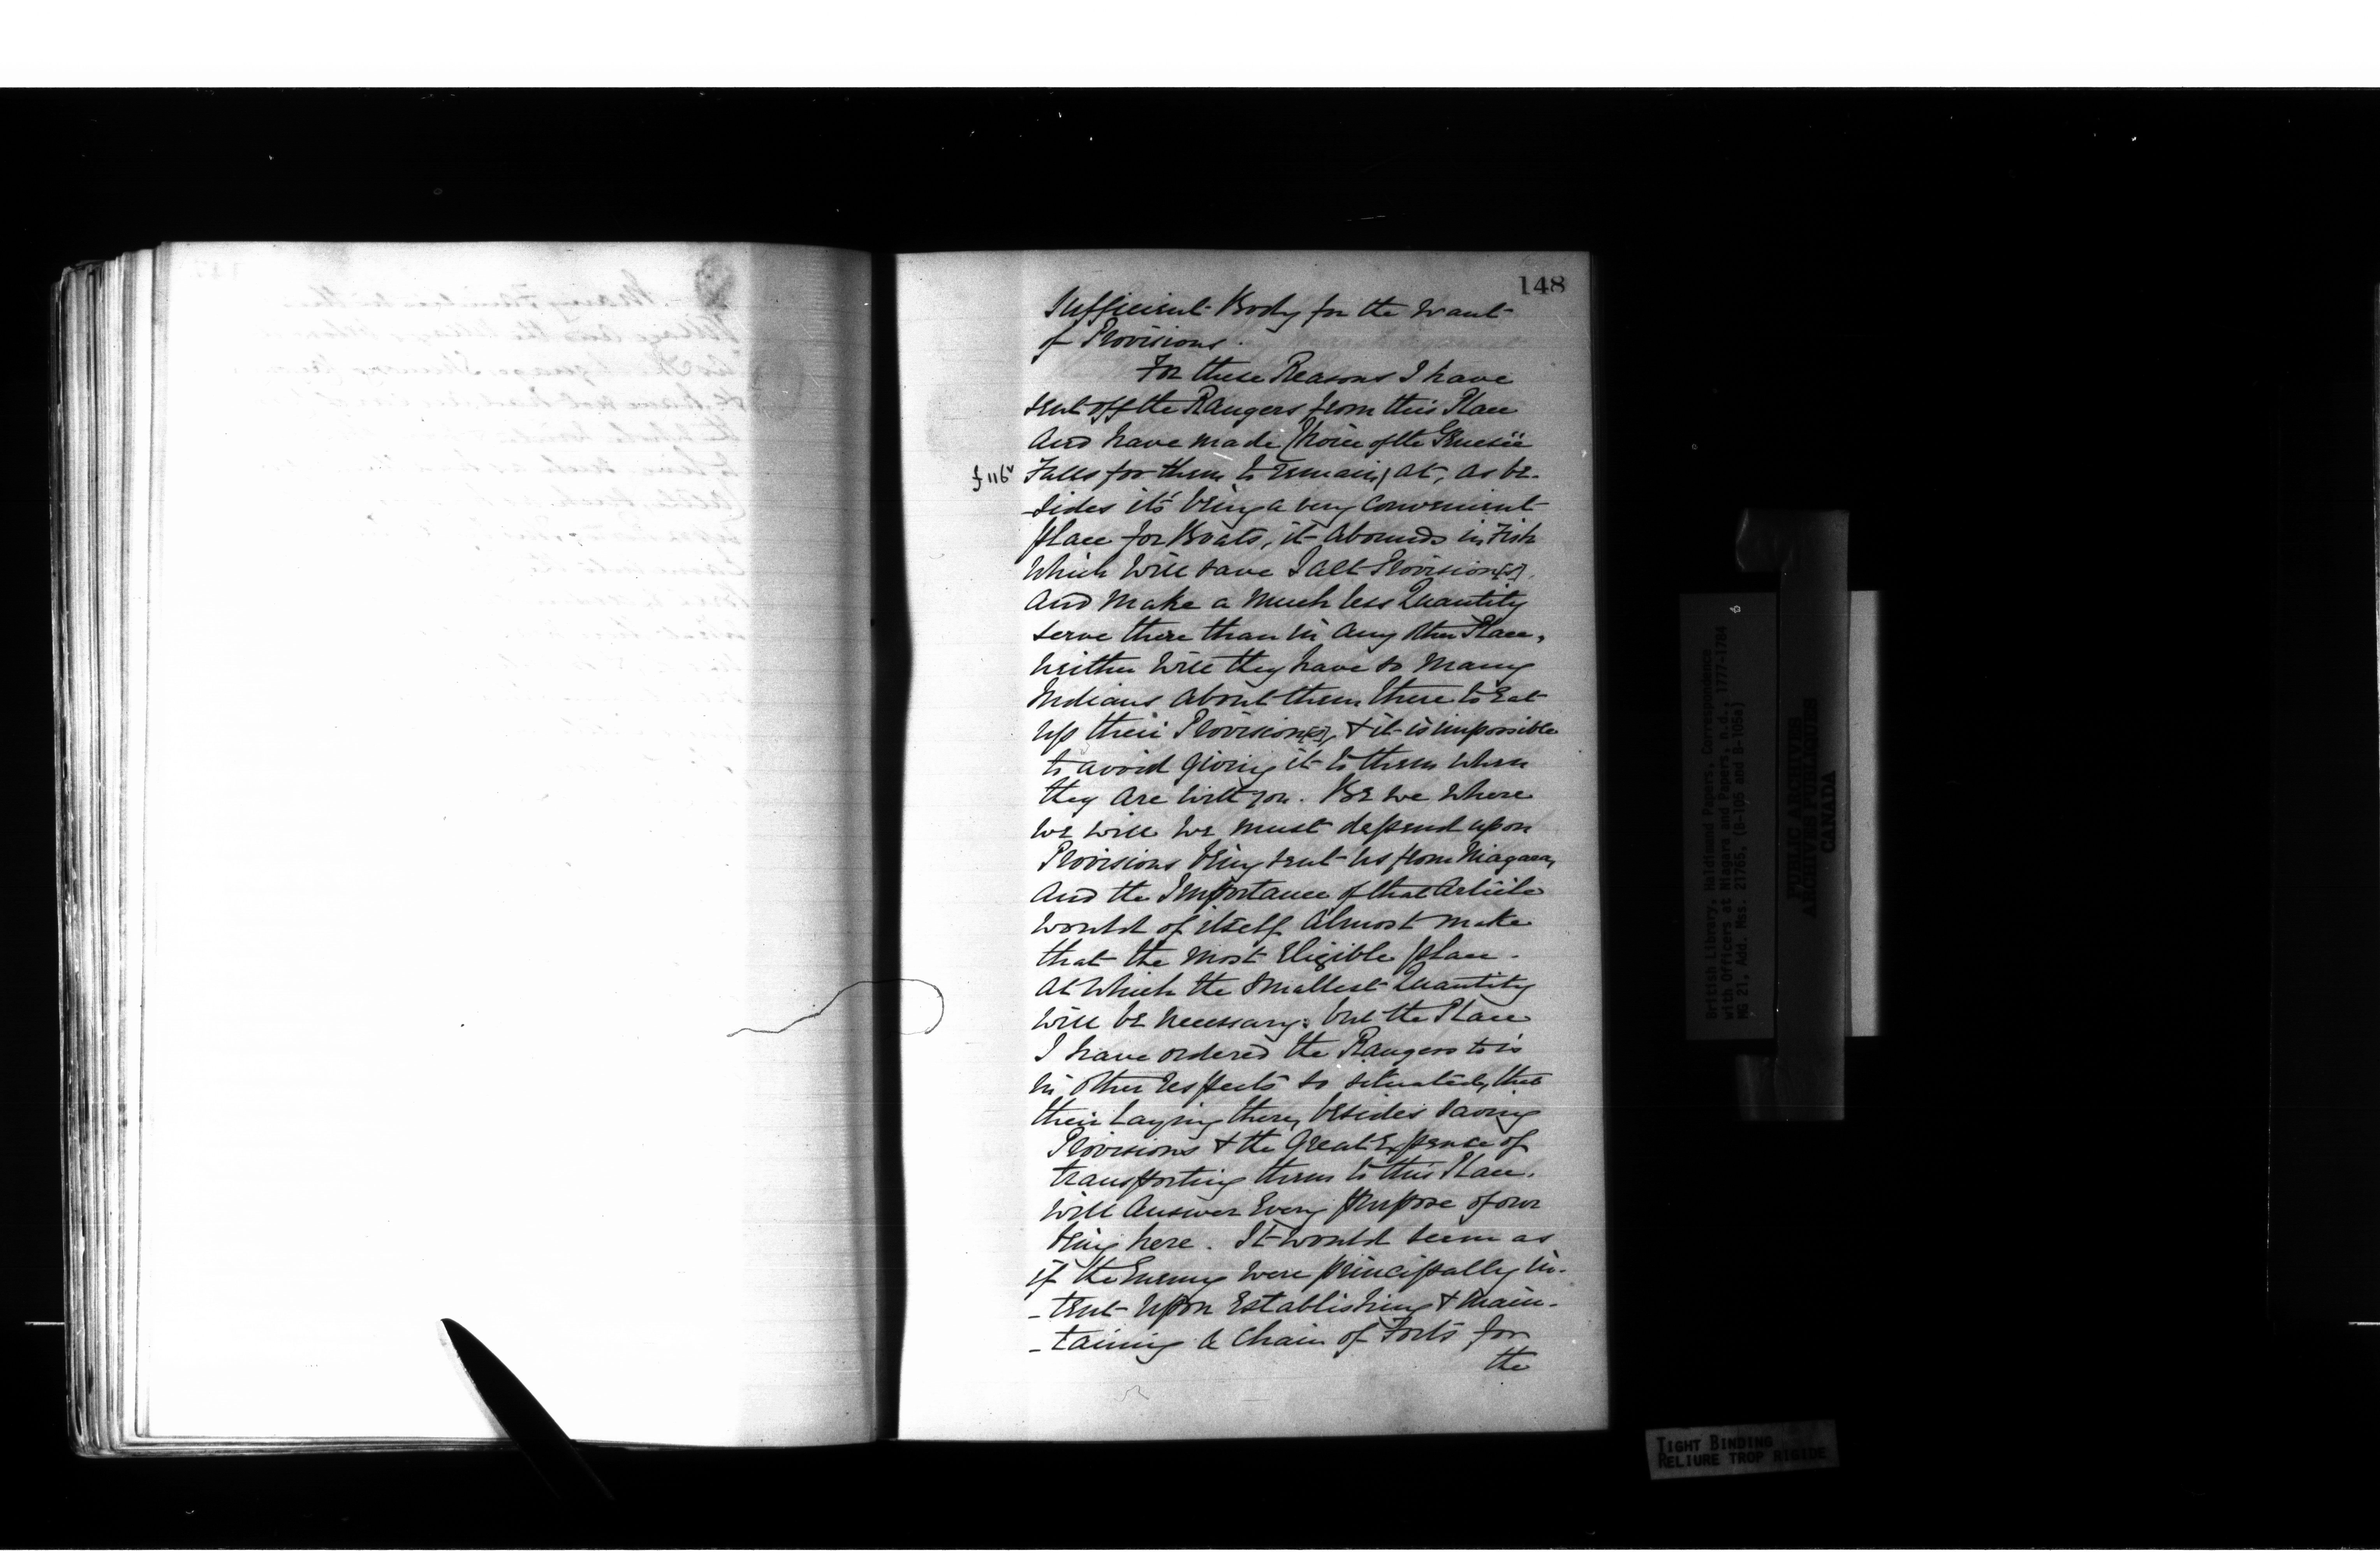 148
sufficient Body for the want
of Provisions.
For these Reasons I have
sent off the Rangers from this Place
And have made Choice of the Genesiē
f 116v
Falls for them to remain at, as be-
-sides its being a very convenient
place for Boats, it abounds in Fish
which will save Salt Provision[s],
and make a much less Quantity
serve there than in any other Place,
neither will they have so many
Indians about them there to Eat
up their Provision[s], & it is impossible
to avoid giving it to them when
they are with you. Be we where
we will we must depend upon
Provisions being sent us from Niagara,
And the Importance of that Article
would of itself almost make
that the most Eligible place.
At which the smallest Quantity
will be necessary: but the Place
I have ordered the Rangers to is
in other respects so situated, that
their Laying there, besides saving
Provisions & the Great Expence of
transporting them to this Place.
will Answer Every purpose of our
being here. It would seem as
if the Enemy were principally in-
-tent upon Establishing & main-
-taining a Chain of Forts for
the
British Library, Haldimand Papers, Correspondence
with Officers at Niagara and Papers, n.d., 1777-1784
MG 21, Add. Mss. 21765, (B-105 and B-105a)
PUBLIC ARCHIVES
ARCHIVES PUBLIQUES
CANADA
TIGHT BINDING
RELIURE TROP RIGIDE